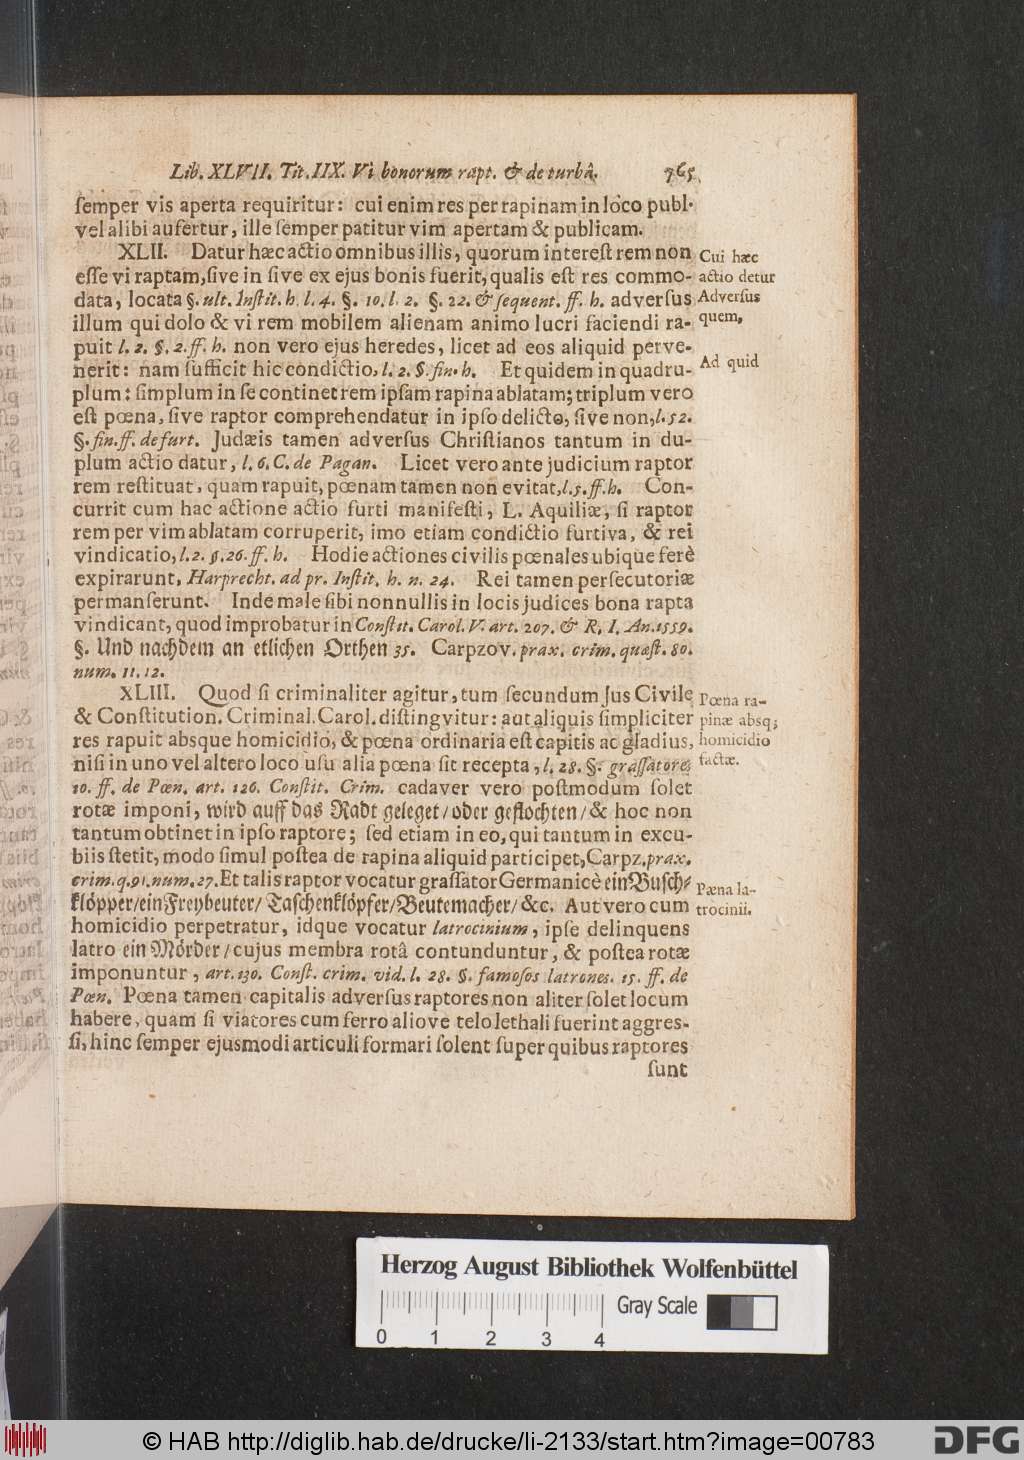 Lib. XLVII. Tit. IIX. Vi bonorum rapt. & de turbâ. 765
ſemper vis aperta requiritur: cui enim res per rapinam in loco publ.
vel alibi aufertur, ille ſemper patitur vim apertam & publicam.
XLII. Datur hæc actio omnibus illis, quorum intereſt rem non
eſſe vi raptam, ſive in ſive ex ejus bonis fuerit, qualis eſt res commo-
data, locata §. ult. Inſtit. h. l. 4. §. 10. l. 2. §. 22. & ſequent. ff. h. adverſus
illum qui dolo & vi rem mobilem alienam animo lucri faciendi ra-
puit l. 2. §. 2. ff. h. non vero ejus heredes, licet ad eos aliquid perve-
nerit: nam ſufficit hic condictio, l. 2. §. fin. h. Et quidem in quadru-
plum: ſimplum in ſe continet rem ipſam rapina ablatam; triplum vero
eſt pœna, ſive raptor comprehendatur in ipſo delicto, ſive non, l. 52.
§. fin. ff. de furt. Judæis tamen adverſus Chriſtianos tantum in du-
plum actio datur, l. 6. C. de Pagan. Licet vero ante judicium raptor
rem reſtituat, quam rapuit, pœnam tamen non evitat, l. 5. ff. h. Con-
currit cum hac actione actio furti manifeſti, L. Aquiliæ, ſi raptor
rem per vim ablatam corruperit, imo etiam condictio furtiva, & rei
vindicatio, l. 2. §. 26. ff. h. Hodie actiones civilis pœnales ubique ferè
expirarunt, Harprecht. ad pr. Inſtit. h. n. 24. Rei tamen perſecutoriæ
permanſerunt. Inde male ſibi nonnullis in locis judices bona rapta
vindicant, quod improbatur in Conſtit. Carol. V. art. 207. & R. I. An. 1559.
§. Und nachdem an etlichen Orthen 35. Carpzov. prax. crim. quæſt. 80.
num. 11. 12.
XLIII. Quod ſi criminaliter agitur, tum ſecundum Jus Civile
& Conſtitution. Criminal. Carol. diſtingvitur: aut aliquis ſimpliciter
res rapuit absque homicidio, & pœna ordinaria eſt capitis ac gladius,
niſi in uno vel altero loco uſu alia pœna ſit recepta, l. 28. §. graſſatores
10. ff. de Pœn. art. 126. Conſtit. Crim. cadaver vero poſtmodum ſolet
rotæ imponi, wird auff das Radt geleget/ oder geflochten/ & hoc non
tantum obtinet in ipſo raptore; ſed etiam in eo, qui tantum in excu-
biis ſtetit, modo ſimul poſtea de rapina aliquid participet, Carpz. prax.
crim. q. 91. num. 27. Et talis raptor vocatur graſſator Germanicè ein Buſch-
klöpper/ ein Freybeuter/ Taſchenklöpfer/ Beutemacher/ &c. Aut vero cum
homicidio perpetratur, idque vocatur latrocinium, ipſe delinquens
latro ein Mörder/ cujus membra rotâ contunduntur, & poſtea rotæ
imponuntur, art. 130. Conſt. crim. vid. l. 28. §. famoſos latrones. 15. ff. de
Pœn. Pœna tamen capitalis adverſus raptores non aliter ſolet locum
habere, quam ſi viatores cum ferro aliove telo lethali fuerint aggreſ-
ſi, hinc ſemper ejusmodi articuli formari ſolent ſuper quibus raptores
ſunt
Cui hæc
actio detur
Adverſus
quem,
Ad quid
Pœna ra-
pinæ absq;
homicidio
factæ.
Pæna la-
trocinii.
Herzog August Bibliothek Wolfenbüttel
Gray Scale
0 1 2 3 4
© HAB http://diglib.hab.de/drucke/li-2133/start.htm?image=00783
DFG